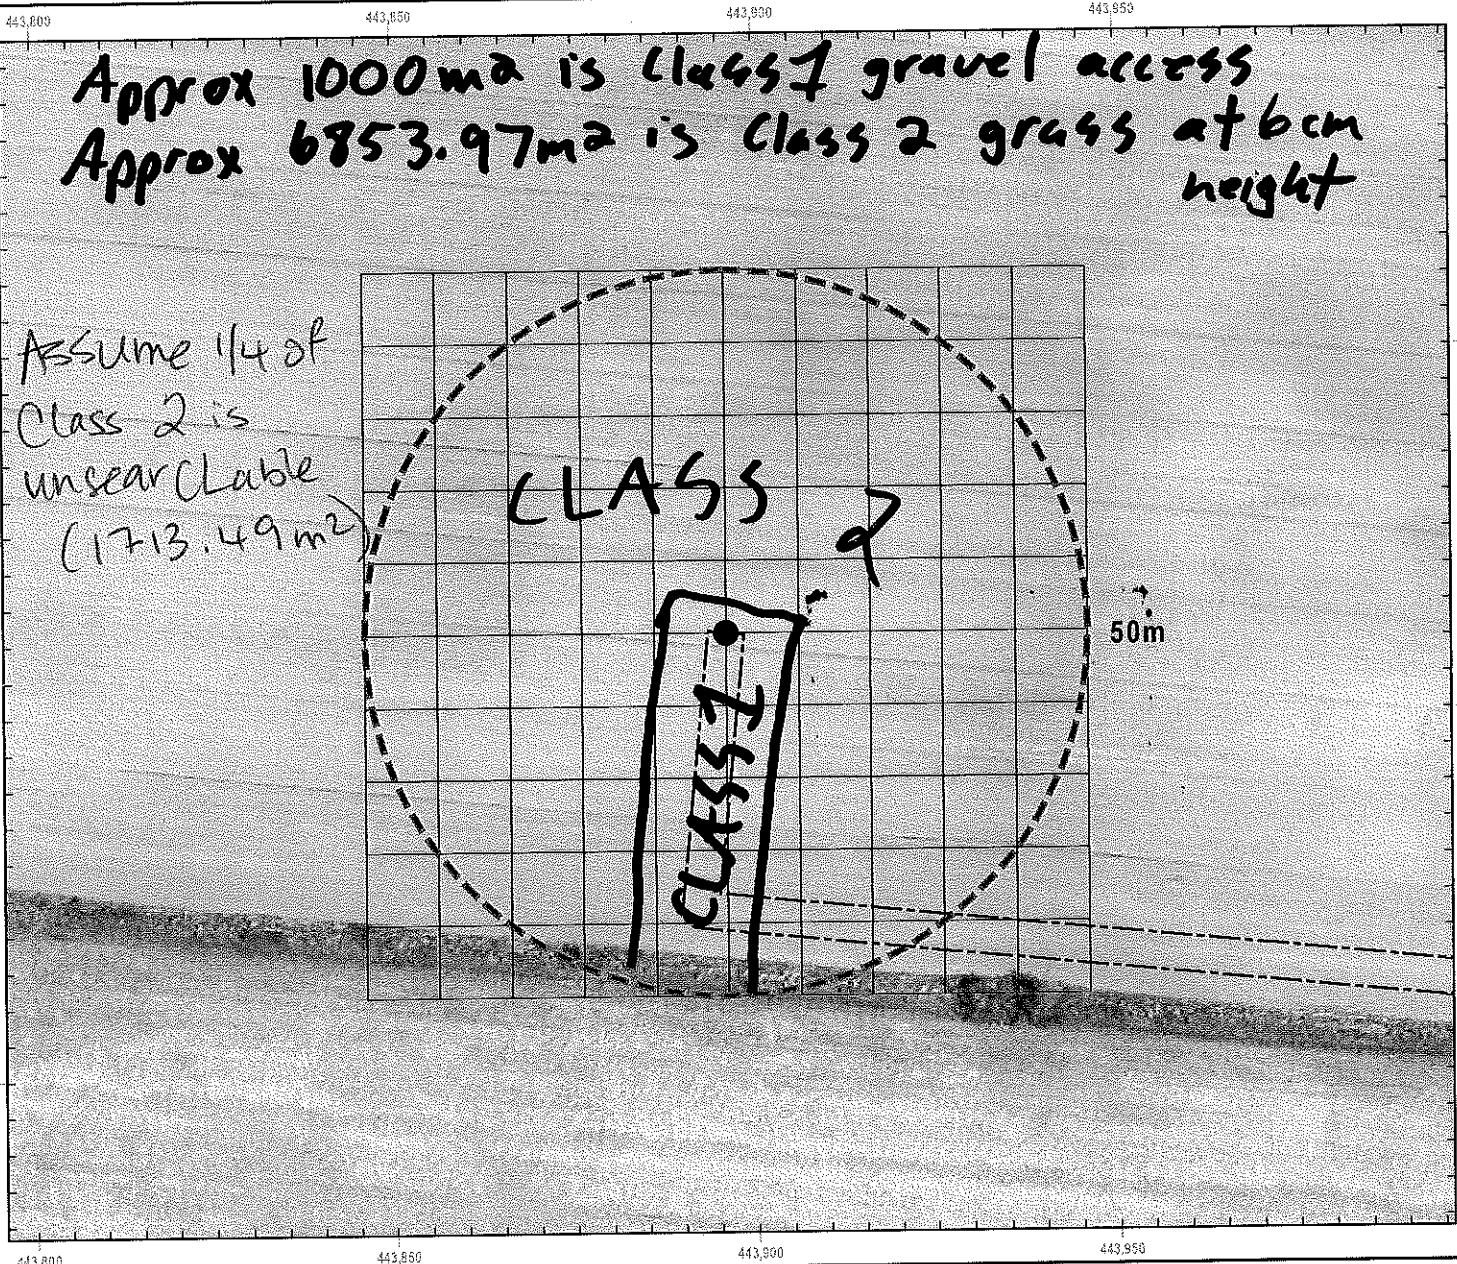 443,800 443,850 443,900 443,950
Approx 1000m2 is Class 1 gravel access
Approx 6853.97m2 is Class 2 grass at 6cm
height
Assume 1/4 of
Class 2 is
unsearchable
(1713.49m²)
CLASS 2
50m
CLASS 1
443,800 443,850 443,900 443,950